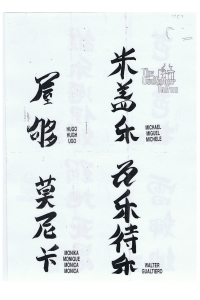 屋够
HUGO
HUGH
UGO
米盖乐
MICHAEL
MIGUEL
MICHELE
莫尼卡
MONIKA
MONIQUE
MONICA
MONICA
瓦乐待尔
WALTER
GUALTIERO